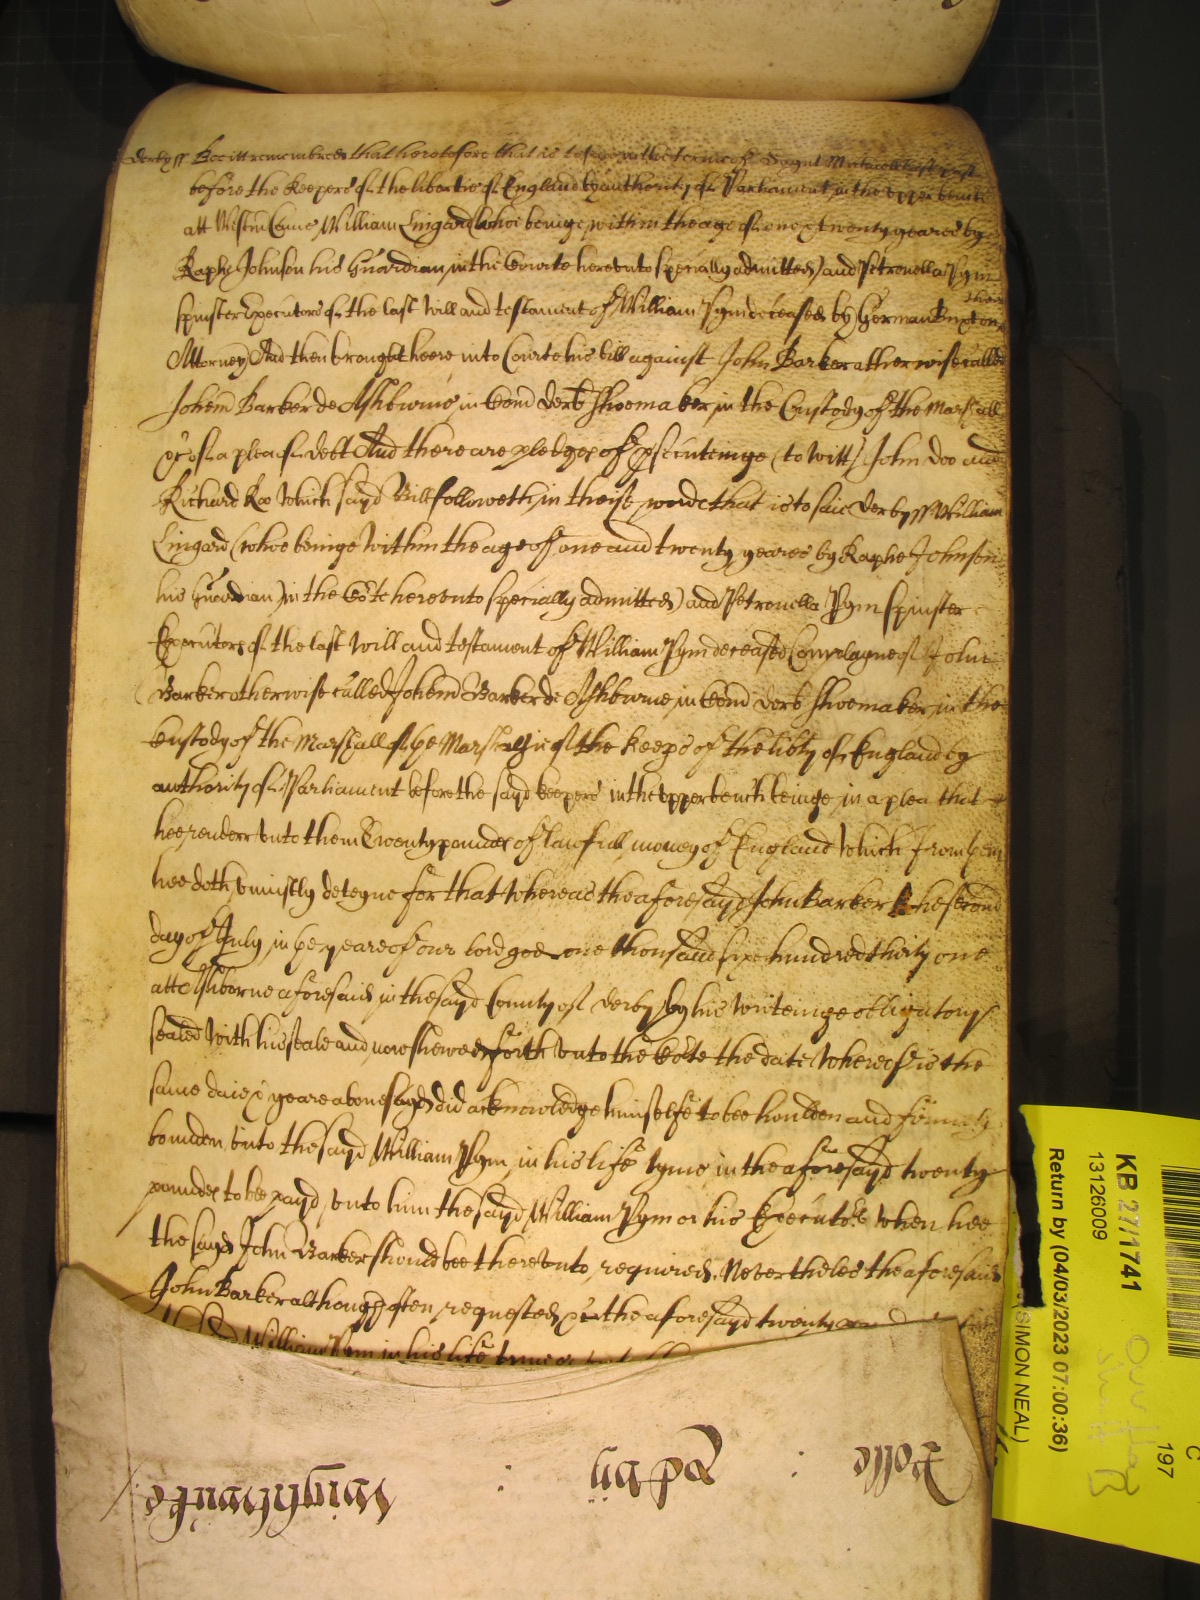 Derby ss Bee itt remembred that heretofore that is to saie in the terme of Saynt Michaell last past
before the Keepers of the libertie of England by authority of Parliament in the upper bench
att Westm Came William Lingard (whoe beinge within the age of one & twenty yeares by
Raphe Johnson his Guardian in the Courte hereunto specially admitted) and Petronella Pym
spinster Executors of the last will and testament of William Pym deceased by German Buxton their
Attorney And then brought heere into Courte his bill against John Barker otherwise called
Johem Barker de Ashburne in Com Derb shoemaker in the Custody of the Marshall
&c of a plea of debt And there are pledges of psecuteinge (to witt) John Doo and
Richard Roo which sayd Bill followeth in theise words that is to saie Derby ss William
Lingard (whoe beinge within the age of one and twenty yeares by Raphe Johnson
his Guardian in the Cote hereunto specially admitted) and Petronella Pym spinster
Executors of the last will and testament of William Pym deceased Complayne of John
Barker otherwise called Johem Barker de Ashburne in Com Derb shoemaker in the
Custody of the Marshall of the Marshalsie of the keeps of the libty of England by
authority of Parliament before the sayd keepers in the upper bench beinge in a plea that
hee render unto them Twenty poundes of lawfull money of England which from them
hee doth uniustly deteyne for that whereas the aforesayd John Barker the second
day of July in the yeare of our lord god one thousand six hundred thirty one
att Ashborne aforesaid in the sayd County of Derby by his writeinge obligatory
sealed with his seale and now shewed forth unto the Cote the date whereof is the
same daie & yeare abovesayd did acknowledge himselfe to bee houlden and firmely
bounden unto the sayd William Pym in his life tyme in the aforesayd twenty
poundes to bee payd unto him the sayd William Pym or his Executors when hee
the sayd John Barker should bee thereunto required. Nevertheles the aforesaid
John Barker although often requested &c the aforesayd twenty
William Pym in his life tyme
Rolle : Ed by : Wightwicke
KB 27/1741
13126009
Return by (04/03/2023 07:00:36)
(SIMON NEAL)
C
197